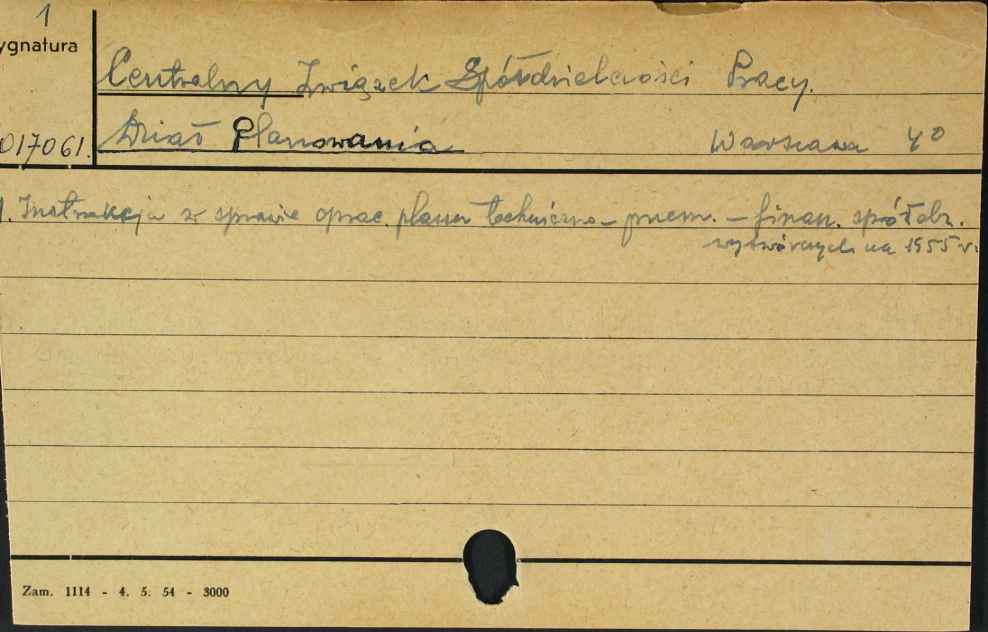 1
ygnatura
Centralny Związek Spółdzielczości Pracy.
017061.
Dział Planowania Warszawa 4°
1. Instrukcja w sprawie oprac. planu techniczno-przem.-finan. spółdz.
wytwórczych na 1955 r.
Zam. 1114 - 4. 5. 54 - 3000